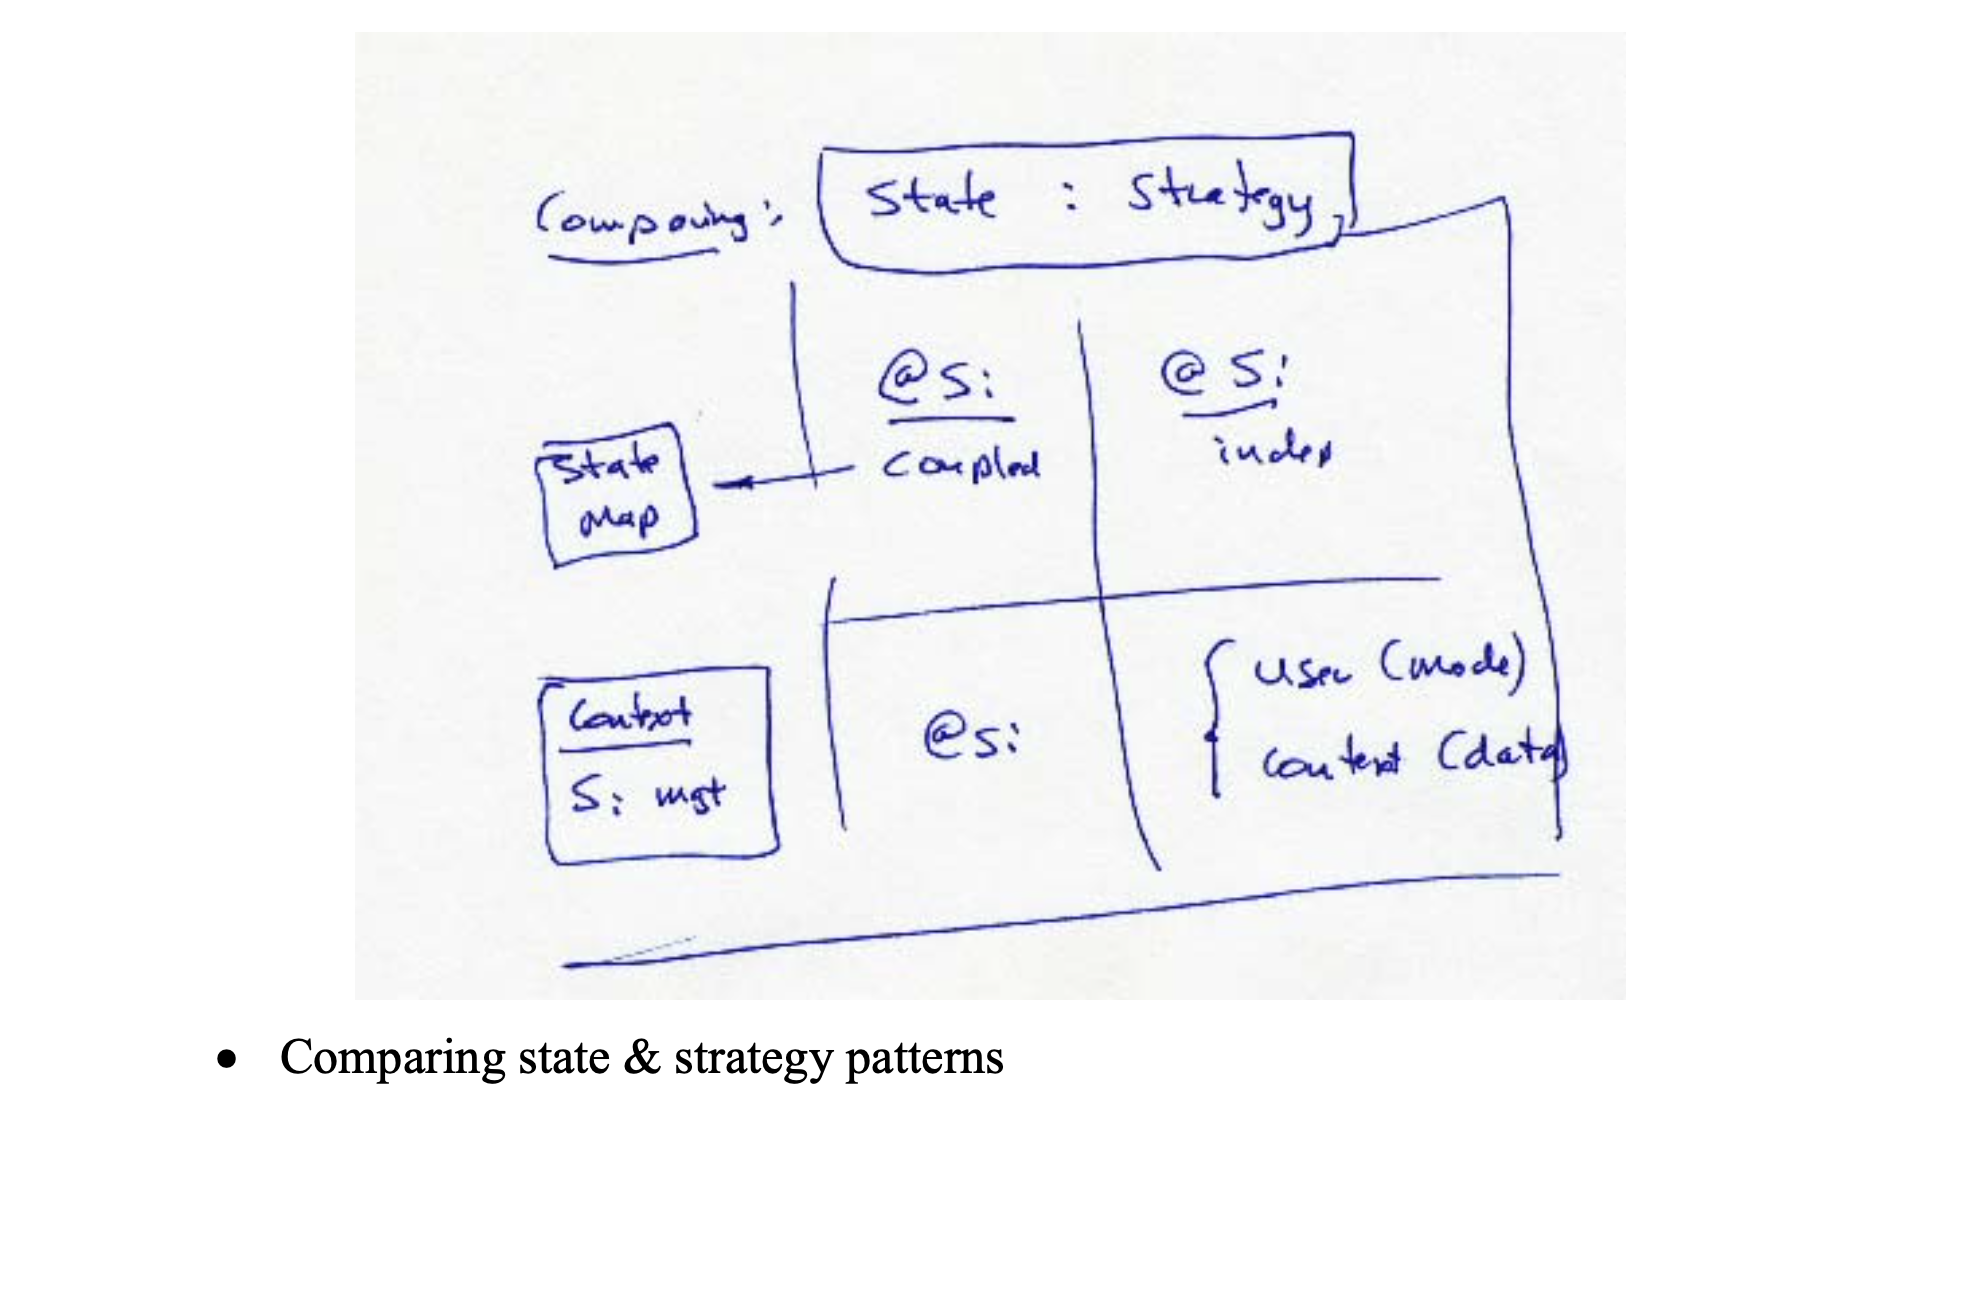 Comparing: State : Strategy
@ Si @ Si
coupled index
State
Map
Context
Si mgt
@ Si
user (mode)
context (data)
• Comparing state & strategy patterns